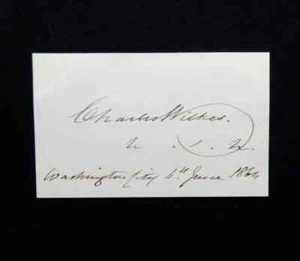 Charles Wilkes.
U. S. N.
Washington City 6th June 1864